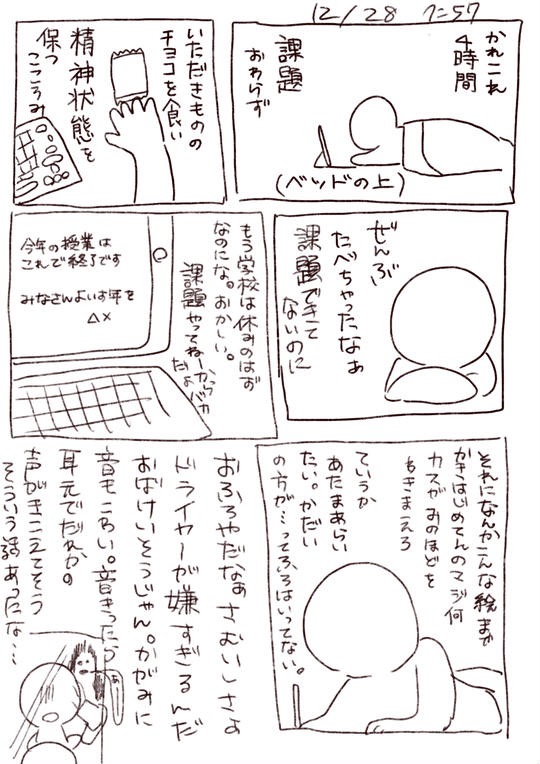 12/28 7:57
かれこれ
4時間
課題
おわらず
(ベッドの上)
いただきものの
チョコを食い
精神状態を
保つ
こころみ
ぜんぶ
たべちゃったなぁ
課題できて
ないのに
もう学校は休みのはず
なのにな。おかしい。
課題やってねーから
だよバカ
今年の授業は
これで終了です
みなさんよいお年を
△×
それになんかこんな絵まで
かきはじめてんのマジ何
カスがみのほどを
わきまえろ
ていうか
あたまあらい
たい。かだい
の方が…ってふろはいってない。
おふろやだなぁ さむいしさぁ
ドライヤーが嫌すぎるんだ
おばけいそうじゃん。かがみに
音もこわい。音きったら
耳元でだれかの
声がきこえてそう
そういう話あったな…